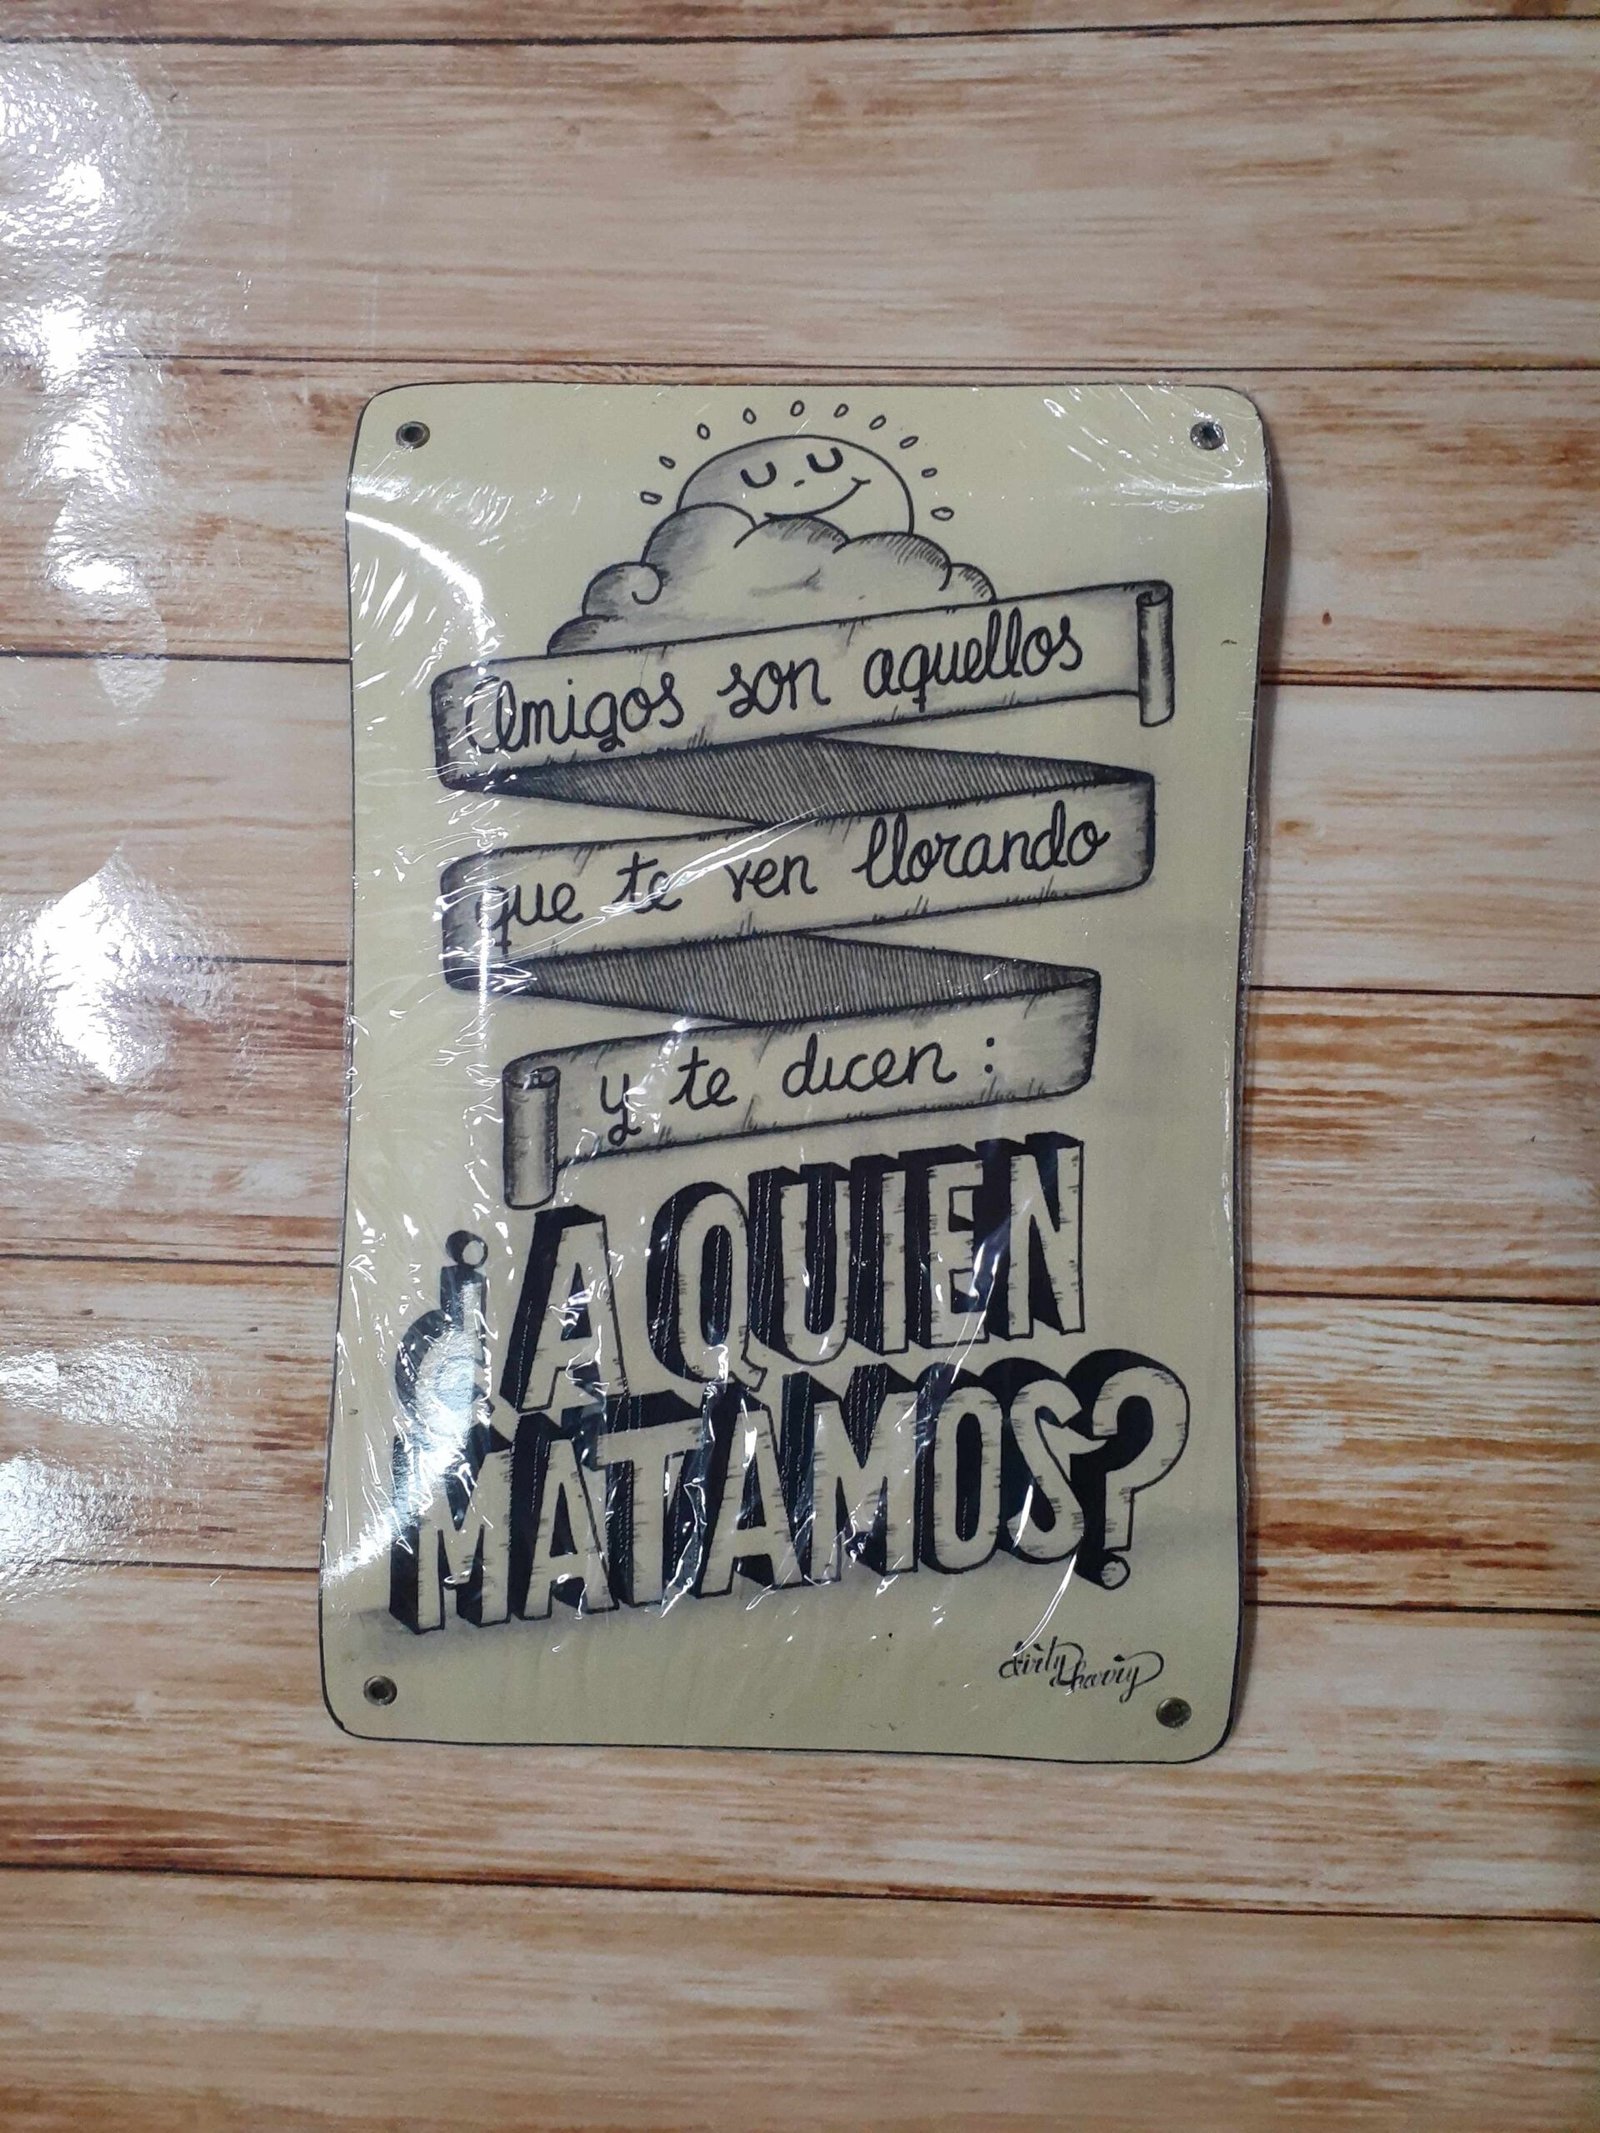 Amigos son aquellos
que te ven llorando
y te dicen:
¿A QUIEN
MATAMOS?
dirty harry